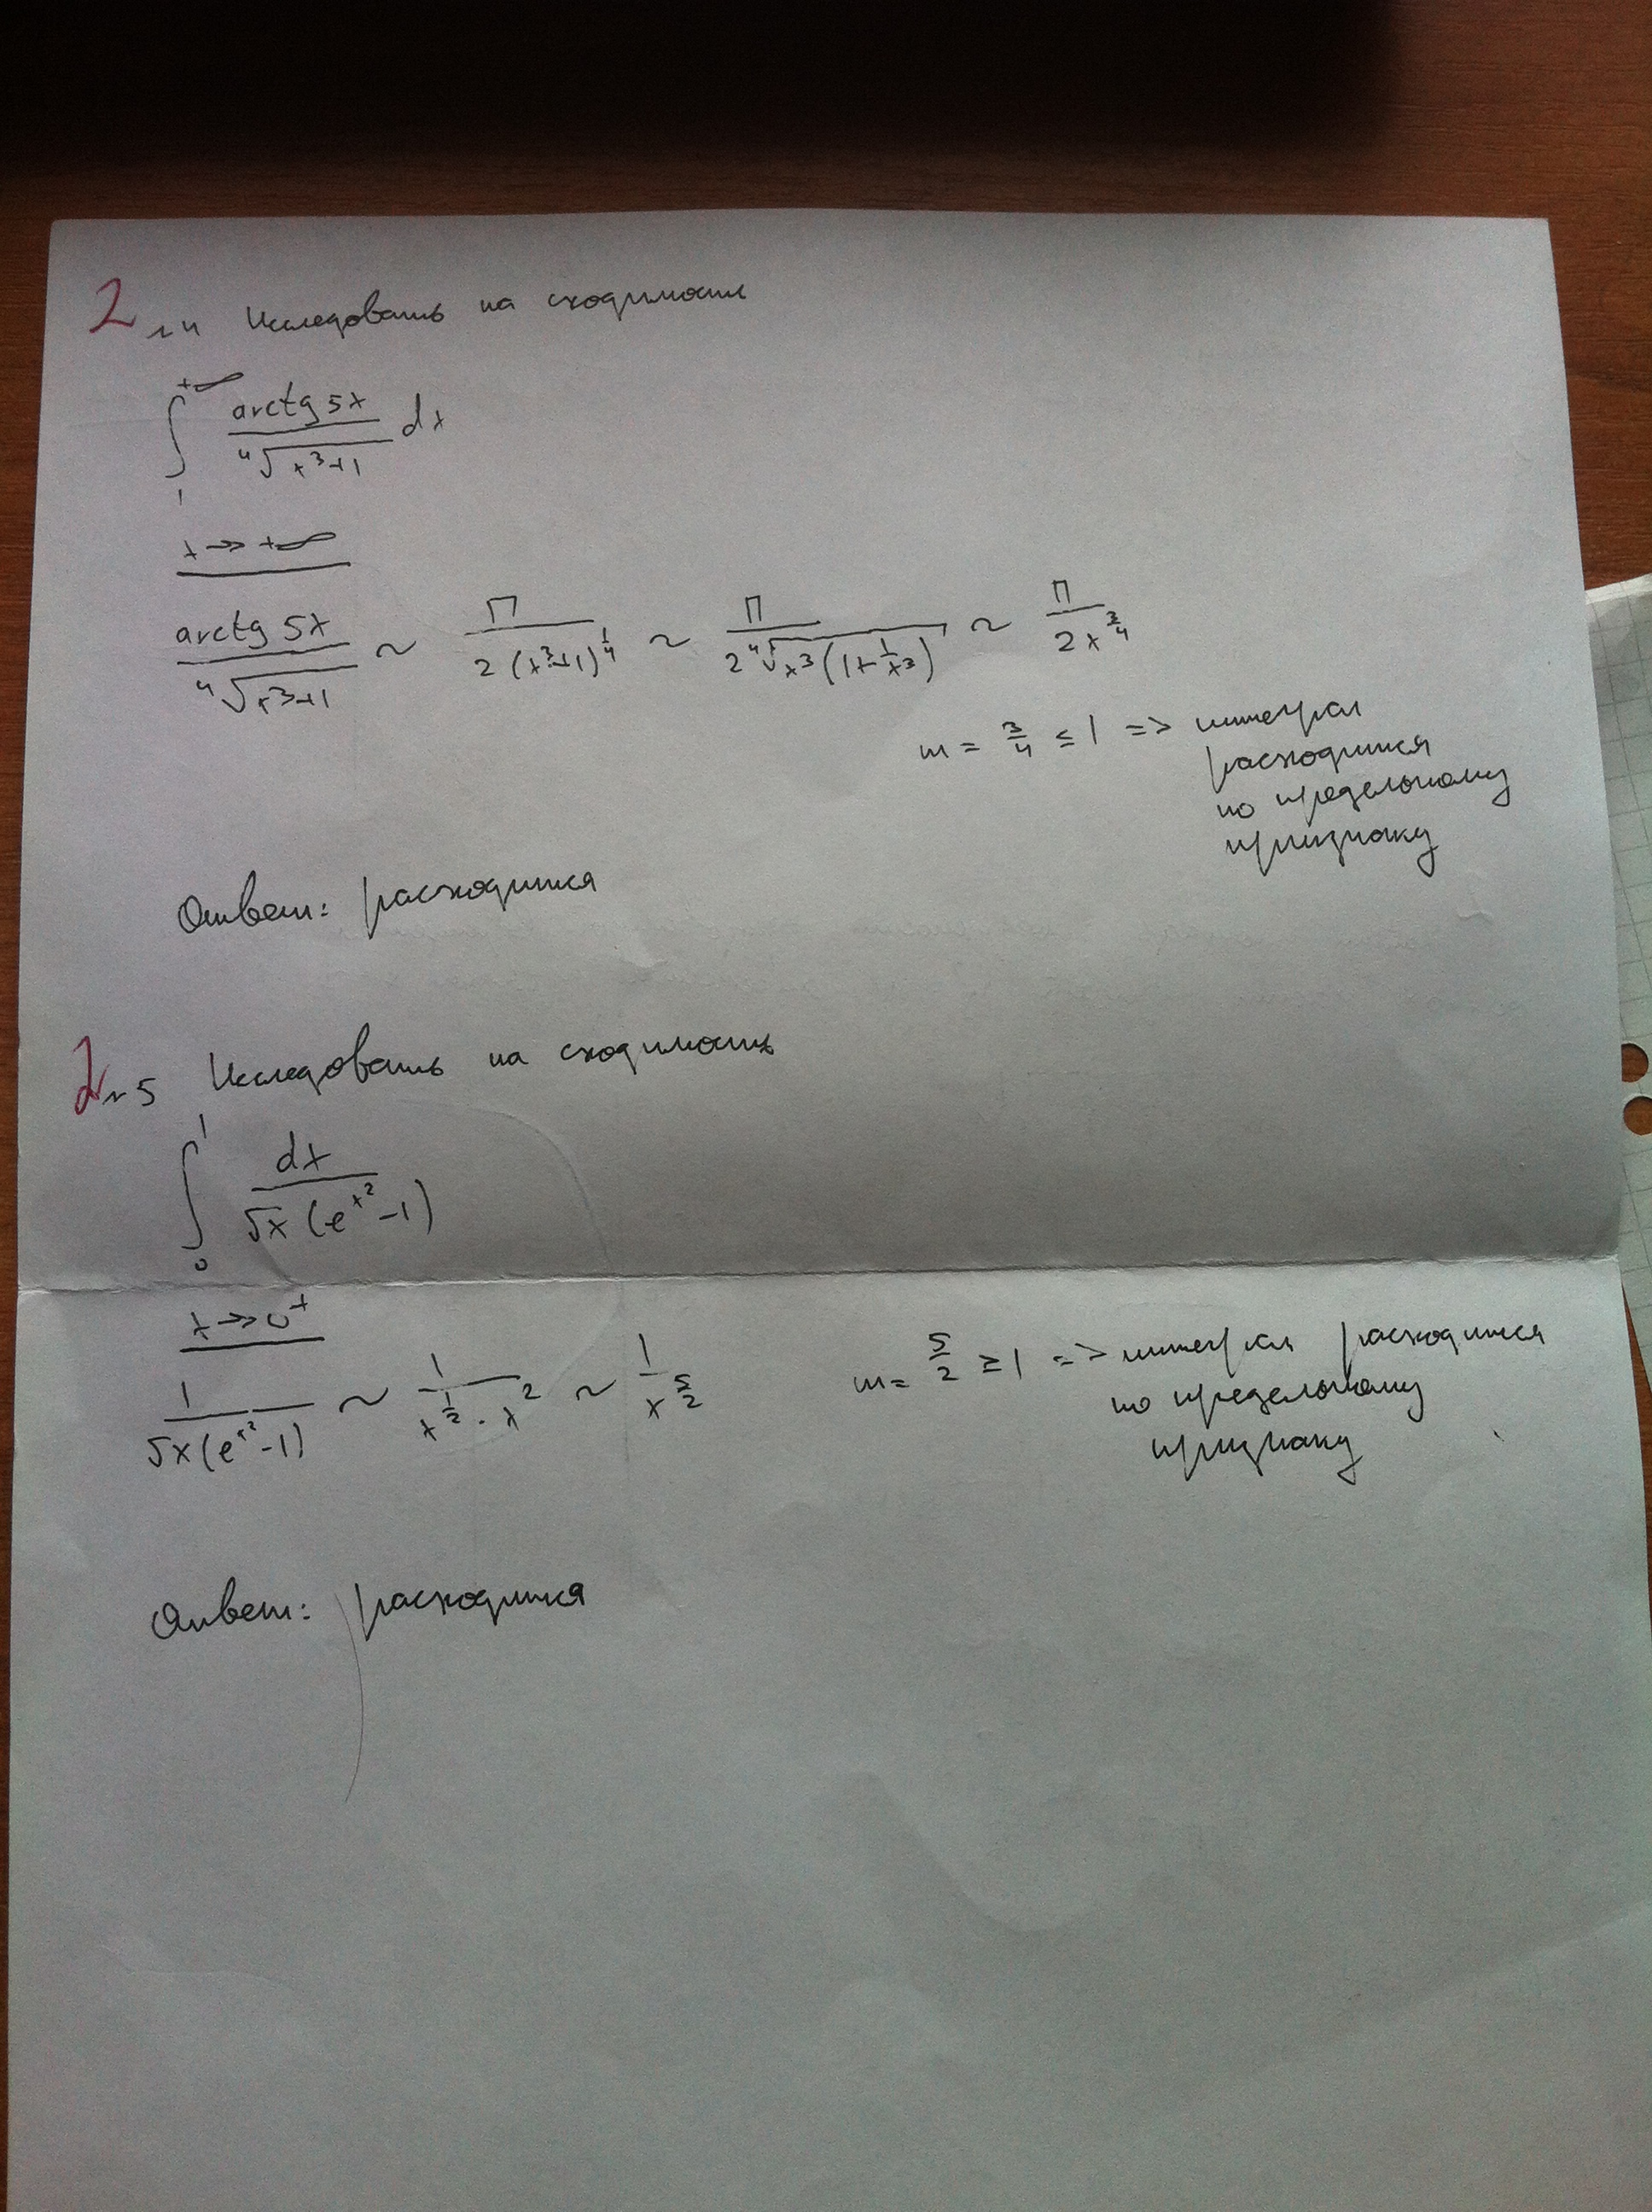 2 №4 Исследовать на сходимость
+∞
∫ arctg 5x / ⁴√(x³+1) dx
1
x → +∞
arctg 5x / ⁴√(x³+1) ~ π / 2(x³+1)^(1/4) ~ π / 2⁴√(x³(1+1/x³)) ~ π / 2x^(3/4)
m = 3/4 ≤ 1 => интеграл
расходится
по предельному
признаку
Ответ: расходится
2 №5 Исследовать на сходимость
1
∫ dx / √x (e^(x²) - 1)
0
x → 0⁺
1 / √x(e^(x²) - 1) ~ 1 / x^(1/2) · x² ~ 1 / x^(5/2)
m = 5/2 ≥ 1 => интеграл расходится
по предельному
признаку
Ответ: расходится